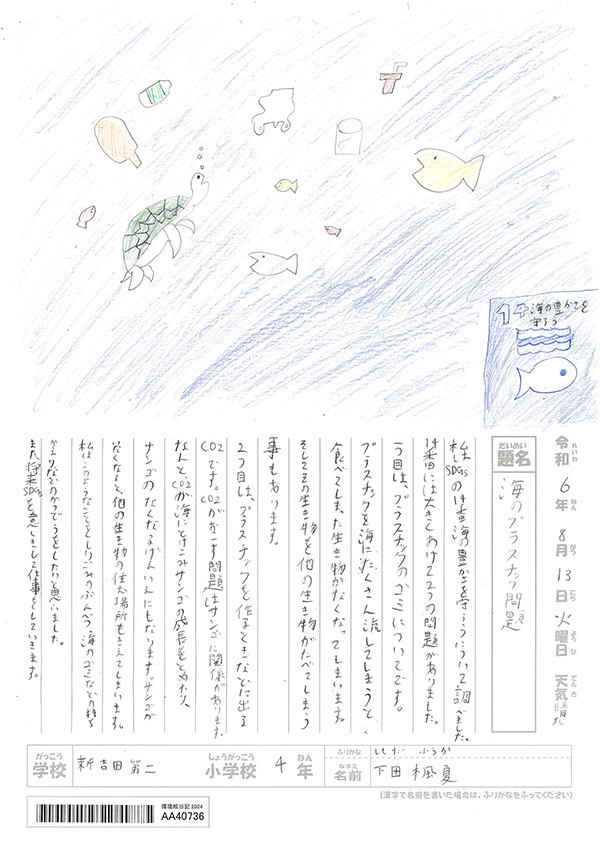 14 海の豊かさを
守ろう
令和6年8月13日火曜日 天気 晴れ
れいわ ねん がつ にち ようび てんき
だいめい
題名 海のプラスチック問題
私はSDGsの14番海の豊かさを守ろうについて調べました。
14番には大きくわけて2つの問題がありました。
1つ目は、プラスチックのゴミについてです。
プラスチックを海にたくさん流してしまうと、
食べてしまった生き物がなくなってしまいます。
そしてその生き物を他の生き物がたべてしまう
事もあります。
2つ目は、プラスチックを作るときなどに出る
CO2です。CO2がおこす問題はサンゴに関係があります。
なんとCO2が海にとけこみサンゴの成長をとめたり、
サンゴのなくなるげんいんにもなります。サンゴが
なくなると、他の生き物の住む場所もきえてしまいます。
私はこのようなことをしりごみのぶんべつ海のゴミなどの持ち
かえりなどのかつどうをしたいと思いました。
また、将来SDGsを意しきして仕事をしていきます。
がっこう しょうがっこう ねん
学校 新吉田第二 小学校 4年
ふりがな しもだ ふうか
なまえ
名前 下田 楓夏
(漢字で名前を書いた場合は、ふりがなをふってください)
環境絵日記2024
AA40736